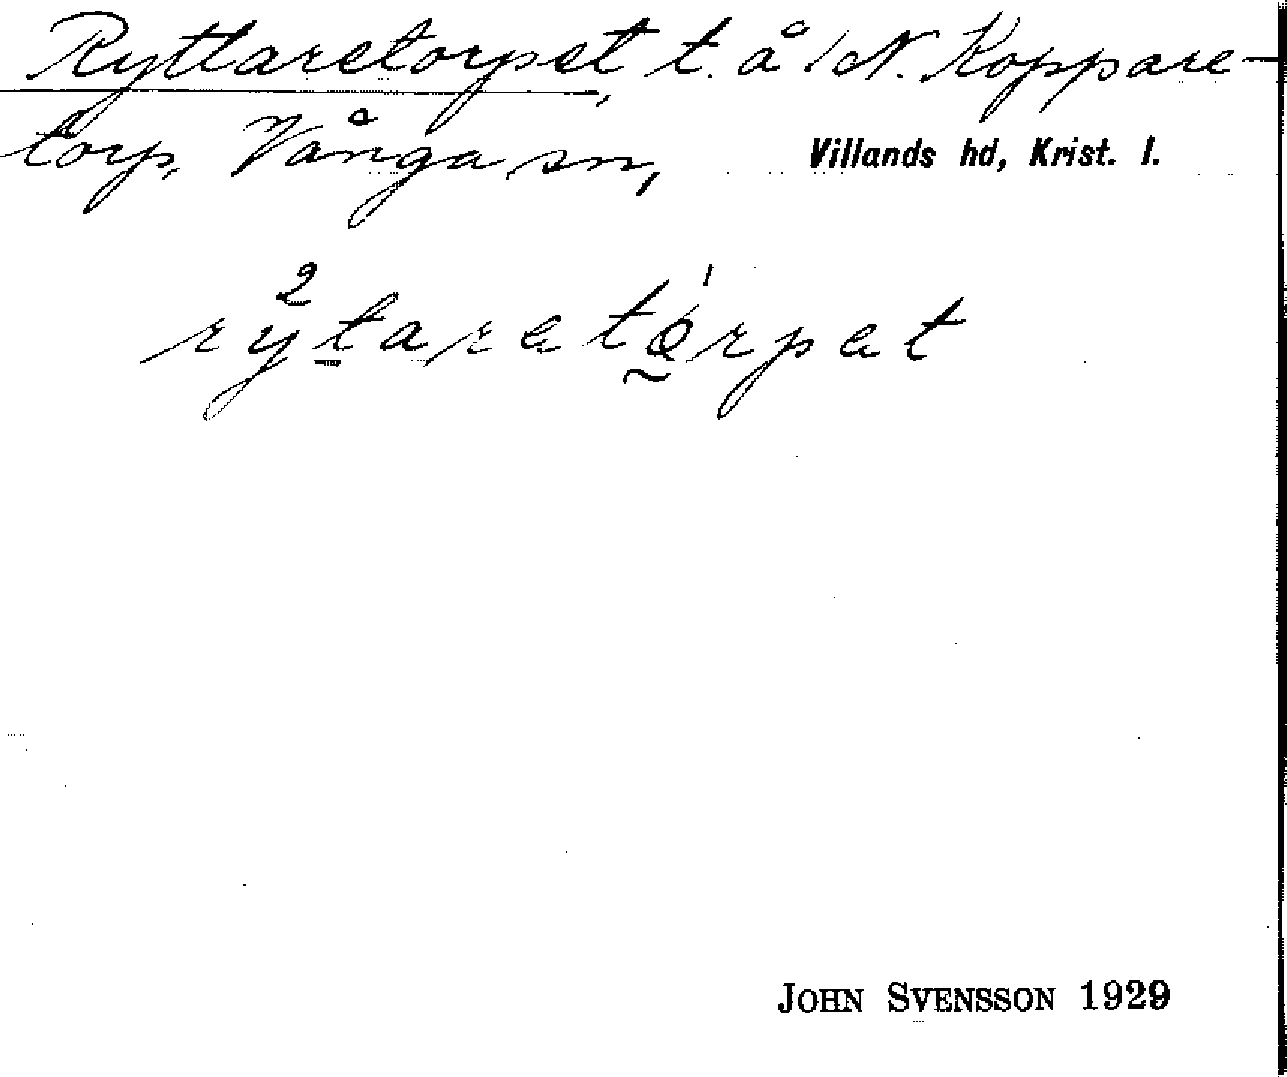 Ryttaretorpet, t. å /N. Koppare-
torp, Vånga sn, Villands hd, Krist. l.
2 1
rytaretorpet
JOHN SVENSSON 1929